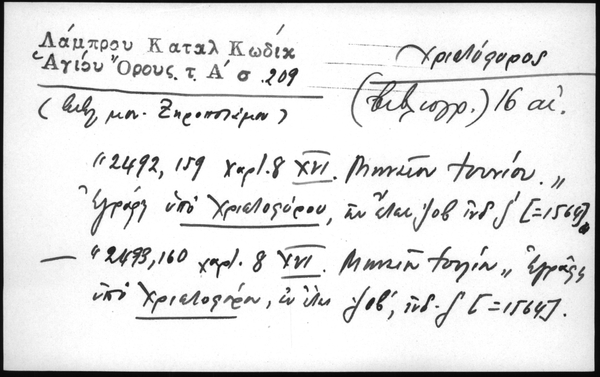 Λάμπρου Καταλ Κωδίκ
Ἁγίου Ὄρους. τ. Α' σ. 209
Χριστόφορος
(βιβλιογρ.) 16 αἰ.
(βιβλ μον. Ξηροποτάμου)
"2492, 159 χαρτ. 8 XVI. Μηναῖον Ἰουνίου. "
Ἐγράφη ὑπὸ Χριστοφόρου, ἐν ἔτει ζοβ ἰνδ ζ' [=1564].
— "2493, 160 χαρτ. 8 XVI. Μηναῖον Ἰουλίου " Ἐγράφη
ὑπὸ Χριστοφόρου, ἐν ἔτει ζοβ', ἰνδ. ζ' [=1564].